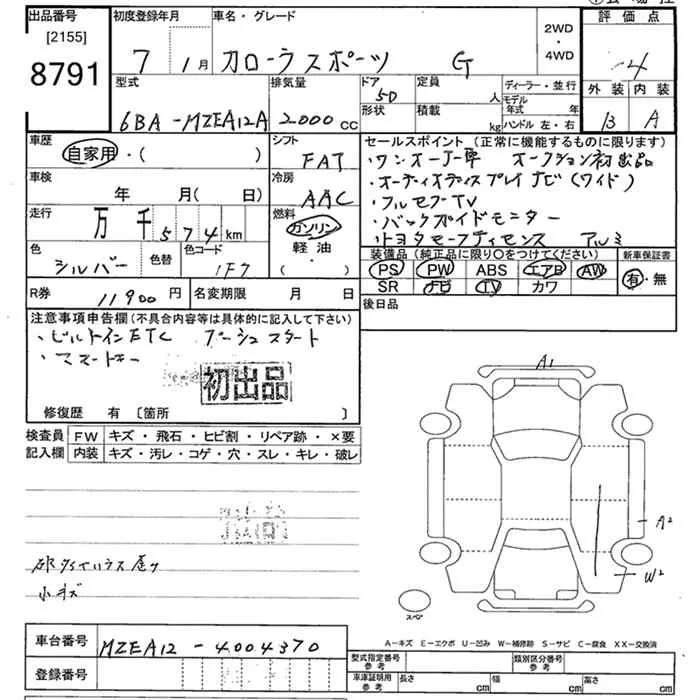 出品番号 初度登録年月 車名・グレード 評価点
[2155]
8791
7 1月 カローラスポーツ G 2WD・4WD 4
型式 排気量 ドア 定員 ディーラー・並行 外装 内装
6BA-MZEA12A 2000cc 5D 人 モデル年式 年 B A
形状 積載 kg ハンドル 左・右
車歴 シフト セールスポイント(正常に機能するものに限ります)
自家用・( ) FAT ・ワンオーナー車 オークション初出品
車検 冷房 ・オーディオディスプレイナビ(ワイド)
年 月(日) AAC ・フルセグTV
走行 燃料 ・バックガイドモニター
万千574km ガソリン ・トヨタセーフティセンス アルミ
色 色替 色コード 軽油・ 装備品(純正品に限り○をつけてください) 新車保証書
シルバー 1F7 ( ) PS PW ABS エアB AW 有・無
SR ナビ TV カワ
R券 11900円 名変期限 月 日 後日品
注意事項申告欄(不具合内容等は具体的に記入して下さい)
・ビルトインETC プッシュスタート
・スマートキー
初出品
修復歴 有 〔箇所 〕
検査員 FW キズ・飛石・ヒビ割・リペア跡・×要
記入欄 内装 キズ・汚レ・コゲ・穴・スレ・キレ・破レ
A1
A2
W2
小キズ
スペア
A-キズ E-エクボ U-凹み W-補修跡 S-サビ C-腐食 XX-交換済
車台番号 MZEA12-4004370
登録番号
型式指定番号 参考 類別区分番号 参考
車庫証明用 参考 長さ cm 幅 cm 高さ cm